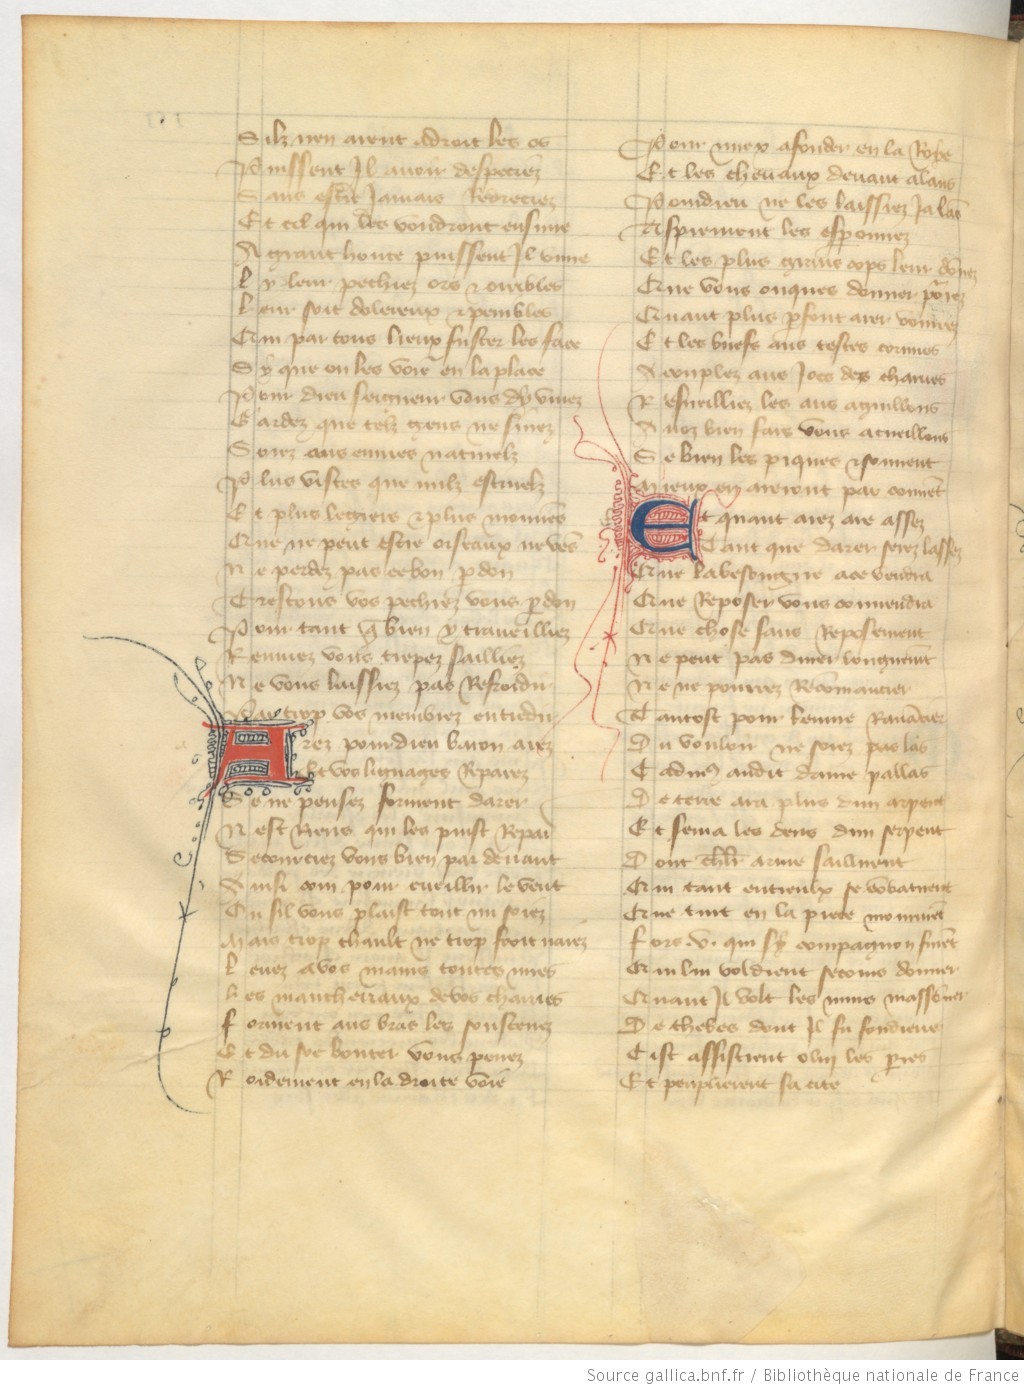 Silz nen aient adroit les os
Puissent Il avoir despeciez
Sans estre Jamais Redreciez
Et cil qui les voudront ensuure
A grant honte puissent Il viure
l y leur pechiez ors et orribles
leur soit doloreux et penibles
Qui par tous lieux fuster les face
Sy que on les voie en la place
Pour dieu seigneur vous dy viuez
Gardez que telz gens ne siuez
Soiez aus euures naturelz
Plus vistes que nulz escurelz
Et plus legiers et plus mouuens
Que ne peut estre oiseaux ne vens
Ne perdez pas ce bon pardon
Trestous vos pechiez vous pardon
Pour tant que bien y traueilliez
Remuez vous trepez sailliez
Ne vous laissiez pas Refroidir
Par trop vos membrez entiedir
Arez pour dieu baron arez
Et vos lignages Reparez
Se ne pensez forment darer
Nest Riens qui les puist Reparer
Secourciez vous bien par deuant
Ainsi com pour cueillir le vent
Ou sil vous plaist tout nu soiez
Mais trop chault ne trop froit naiez
leuez a vos mains toutes nues
les mancheraux de vos charues
forment aus bras les soustenez
Et du soc bouter vous penez
Roidement en la droite voie
Pour miex afonder en la Roye
Et les cheuaux deuant alans
Pour dieu ne les laissiez Ja lans
Asprement les esperonnez
Et les plus grans cops leur donnez
Que vous onques donner porez
Quant plus parfont arer vourrez
Et les buefs aus testes cornues
Acouplez aus Jocs des charues
Resueilliez les aus aguillons
A noz bien fais vous acueillons
Se bien les piques et souuent
Mieux en areront par conuent
Et quant arez are assez
Tant que darer serez lassez
Que la besongne a ce vendra
Que Reposer vous conuendra
Que chose sans Reposement
Ne peut pas durer longuement
Ne ne pourrez Recommancier
Tantost pour leuure Rauancier
Du vouloir ne soiez pas las
Cadmus au dit dame pallas
De terre ara plus dun arpent
Et sema les dens dun serpent
Dont cheualier arme saillirent
Qui tant entreulx se combatirent
Que tuit en la piece mourirent
fors .v. qui sy compagnon furent
Qui lui voldrent secours donner
Quant Il volt les murs massonner
De thebes dont Il fu fondierre
Cist assistrent o lui les pierres
Et peuplierent sa cite
Source gallica.bnf.fr / Bibliothèque nationale de France